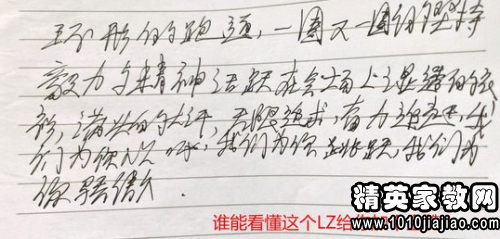 环形的跑道,一圈又一圈的坚持
毅力与精神活跃在会场上,显露的
彩,满头的大汗,无限追求,奋力追逐,我
们为你欢呼,我们为你跳跃,我们为
你骄傲.
谁能看懂这个LZ给
精英家教网
www.1010jiajiao.com